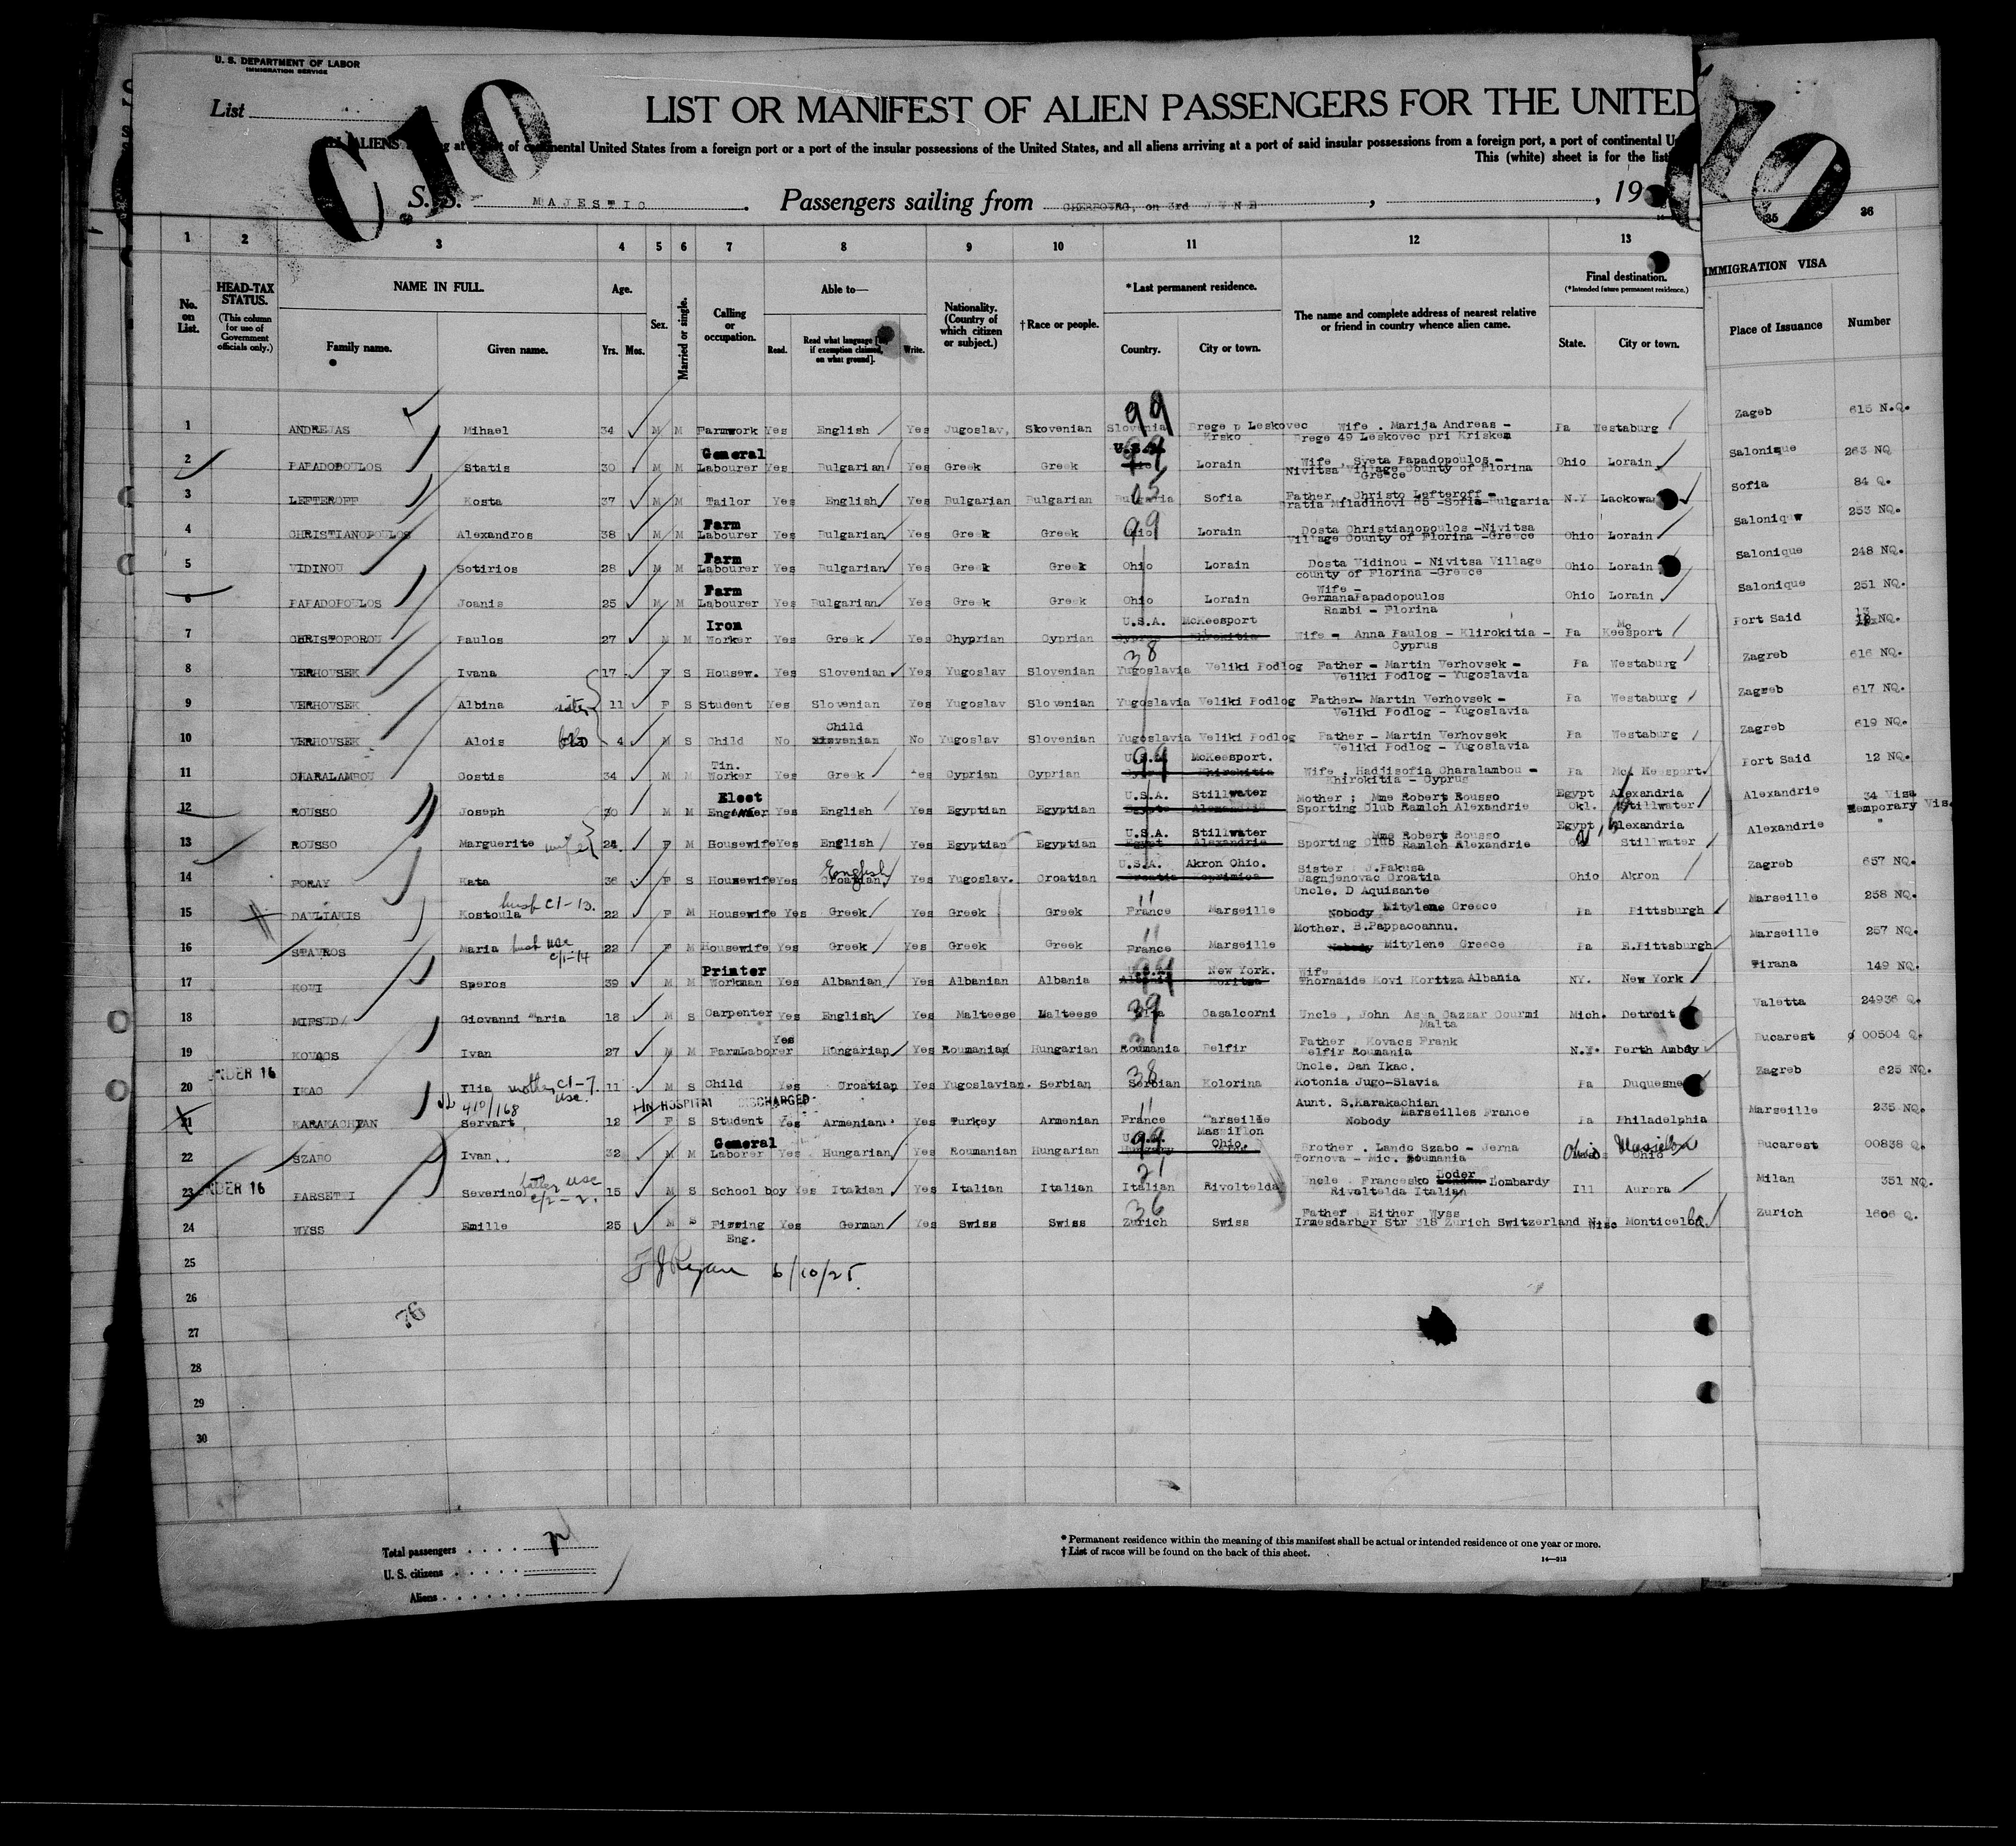 U. S. DEPARTMENT OF LABOR
IMMIGRATION SERVICE
List
C 10
10
LIST OR MANIFEST OF ALIEN PASSENGERS FOR THE UNITED
ALIENS of continental United States from a foreign port or a port of the insular possessions of the United States, and all aliens arriving at a port of said insular possessions from a foreign port, a port of continental
This (white) sheet is for the list
S. S. MAJESTIC. Passengers sailing from CHERBOURG, on 3rd JUNE, , 19
1 2 3 4 5 6 7 8 9 10 11 12 13 35 36
No. on List.
HEAD-TAX STATUS.
(This column for use of Government officials only.)
NAME IN FULL.
Family name. Given name.
Age.
Yrs. Mos.
Sex.
Married or single.
Calling or occupation.
Able to—
Read. Read what language if exemption claimed, on what ground]. Write.
Nationality. (Country of which citizen or subject.)
†Race or people.
*Last permanent residence.
Country. City or town.
The name and complete address of nearest relative or friend in country whence alien came.
Final destination.
(*Intended future permanent residence.)
State. City or town.
IMMIGRATION VISA
Place of Issuance Number
1 ANDREJAS Mihael 34 M M Farmwork Yes English Yes Jugoslav, Slovenian Slovenia 99 Brege p Leskovec Krsko Wife . Marija Andreas - Brege 49 Leskovec pri Kriskem Pa Westaburg Zageb 615 N.Q.
2 PAPADOPOULOS Statis 30 M M General Labourer Yes Bulgarian Yes Greek Greek U.S.A. Lorain Wife Sveta Papadopoulos - Nivitsa Village County of Florina Greece Ohio Lorain Salonique 263 NQ
3 LEFTEROFF Kosta 37 M M Tailor Yes English Yes Bulgarian Bulgarian Bulgaria Sofia Father Christo Lefteroff - Bratia Miladinovi 65 -Sofia-Bulgaria N.Y Sofia 84 Q.
4 CHRISTIANOPOULOS Alexandros 38 M M Farm Labourer Yes Bulgarian Yes Greek Greek Ohio 99 Lorain Dosta Christianopoulos -Nivitsa Village County of Florina -Greece Ohio Lorain Saloniquw 253 NQ.
5 VIDINOU Sotirios 28 M M Farm Labourer Yes Bulgarian Yes Greek Greek Ohio Lorain Dosta Vidinou - Nivitsa Village county of Florina -Greece Ohio Lorain Salonique 248 NQ.
6 PAPADOPOULOS Joanis 25 M M Farm Labourer Yes Bulgarian Yes Greek Greek Ohio Lorain Wife - GermanaPapadopoulos Rambi - Florina Ohio Lorain Salonique 251 NQ.
7 CHRISTOFOROU Paulos 27 M M Iron Worker Yes Greek Yes Chyprian Cyprian U.S.A. McKeesport Cyprus Khirokitia Wife - Anna Paulos - Klirokitia - Cyprus Pa Mc Keesport Port Said 13 NQ.
8 VERHOVSEK Ivana 17 F S Housew. Yes Slovenian Yes Yugoslav Slovenian 38 Yugoslavia Veliki Podlog Father - Martin Verhovsek - Veliki Podlog - Yugoslavia Pa Westaburg Zagreb 616 NQ.
9 VERHOVSEK Albina sister 11 F S Student Yes Slovenian Yes Yugoslav Slovenian Yugoslavia Veliki Podlog Father- Martin Verhovsek - Veliki Podlog - Yugoslavia Pa Westaburg Zagreb 617 NQ.
10 VERHOVSEK Alois bro 4 M S Child No Child Slovenian No Yugoslav Slovenian Yugoslavia Veliki Podlog Father - Martin Verhovsek Veliki Podlog - Yugoslavia Pa Westaburg Zagreb 619 NQ.
11 CHARALAMBOU Costis 34 M M Tin. Worker Yes Greek Yes Cyprian Cyprian U.S.A. 99 McKeesport. Cyprus Khirokitia Wife . Hadjisofia Charalambou - Khirokitia - Cyprus Pa Mc Keesport. Port Said 12 NQ.
12 ROUSSO Joseph 30 M M Elect Engineer Yes English Yes Egyptian Egyptian U.S.A. Stillwater Egypte Alexandrie Mother ; Mme Robert Rousso Sporting Club Ramleh Alexandrie Egypt Alexandria Okl. Stillwater Alexandrie 34 Visa Temporary Vis.
13 ROUSSO Marguerite wife 24 F M Housewife Yes English Yes Egyptian Egyptian U.S.A. Stillwater Egypt Alexandrie Mme Robert Rousso Sporting Club Ramleh Alexandrie Egypt Alexandria Stillwater Alexandrie "
14 FORAY Kata 36 F S Housewife Yes English Croatian. Yes Yugoslav. Croatian U.S.A. Akron Ohio. Croatia Koprinica Sister J.Pakusa Jagnjenovac Croatia Ohio Akron Zagreb 657 NQ.
15 DAVLIAKIS Kostoula husb C1-13. 22 F M Housewife Yes Greek Yes Greek Greek 11 France Marseille Uncle. D Aquisante Nobody Mitylene Greece Pa Pittsburgh Marseille 258 NQ.
16 STAVROS Maria husb use C1-14 22 F M Housewife Yes Greek Yes Greek Greek 11 France Marseille Mother. B.Pappacoannu. Nobody Mitylene Greece Pa E.Pittsburgh Marseille 257 NQ.
17 KOVI Speros 39 M M Printer Workman Yes Albanian Yes Albanian Albania U.S.A. New York. Albania Koritza Wife Thornaide Kovi Koritza Albania NY. New York Tirana 149 NQ.
18 MIFSUD Giovanni Maria 18 M S Carpenter Yes English Yes Malteese Malteese 39 Casalcorni Uncle , John Gourmi Malta Mich. Detroit Valetta 24936 Q.
19 KOVACS Ivan 27 M M FarmLaborer Yes Hungarian Yes Roumanian Hungarian Roumania Belfir Father . Kovacs Frank Belfir Roumania N.Y. Perth Amboy Bucarest 00504 Q.
20 UNDER 16 IKAC Ilia mother C1-7. use. 11 M S Child Yes Croatian Yes Yugoslavian. Serbian 38 Serbian Kolorina Uncle. Dan Ikac. Kotonia Jugo-Slavia Pa Duquesne Zagreb 625 NQ.
IN HOSPITAL DISCHARGED
21 KARAKACHIAN 410/168 Servart 12 F S Student Yes Armenian. Yes Turkey Armenian 11 France Marseille Aunt. S.Karakachian Marseilles France Nobody Pa Philadelphia Marseille 235 NQ.
22 SZABO Ivan. 32 M M General Laborer Yes Hungarian Yes Roumanian Hungarian U.S. 99 Massillon Ohio. Hungary Brother . Lando Szabo - Jerna Tornova - Mic. Roumania Ohio Ohio Bucarest 00838 Q.
23 UNDER 16 PARSETTI Severino father use C/2-2. 15 M S School boy Yes Italian Yes Italian Italian 21 Italian Rivoltelda Uncle Francesko Boder Lombardy Rivoltelda Italian Ill Aurora Milan 351 NQ.
24 WYSS Emille 25 M S Fissing Eng. Yes German Yes Swiss Swiss 36 Zurich Swiss Father . Either Wyss Irmesdarber Str 318 Zurich Switzerland Wisc Monticello Zurich 1606 Q.
25
F J Ryan 6/10/25.
26
76
27
28
29
30
Total passengers
U. S. citizens
Aliens
* Permanent residence within the meaning of this manifest shall be actual or intended residence of one year or more.
† List of races will be found on the back of this sheet.
14—313